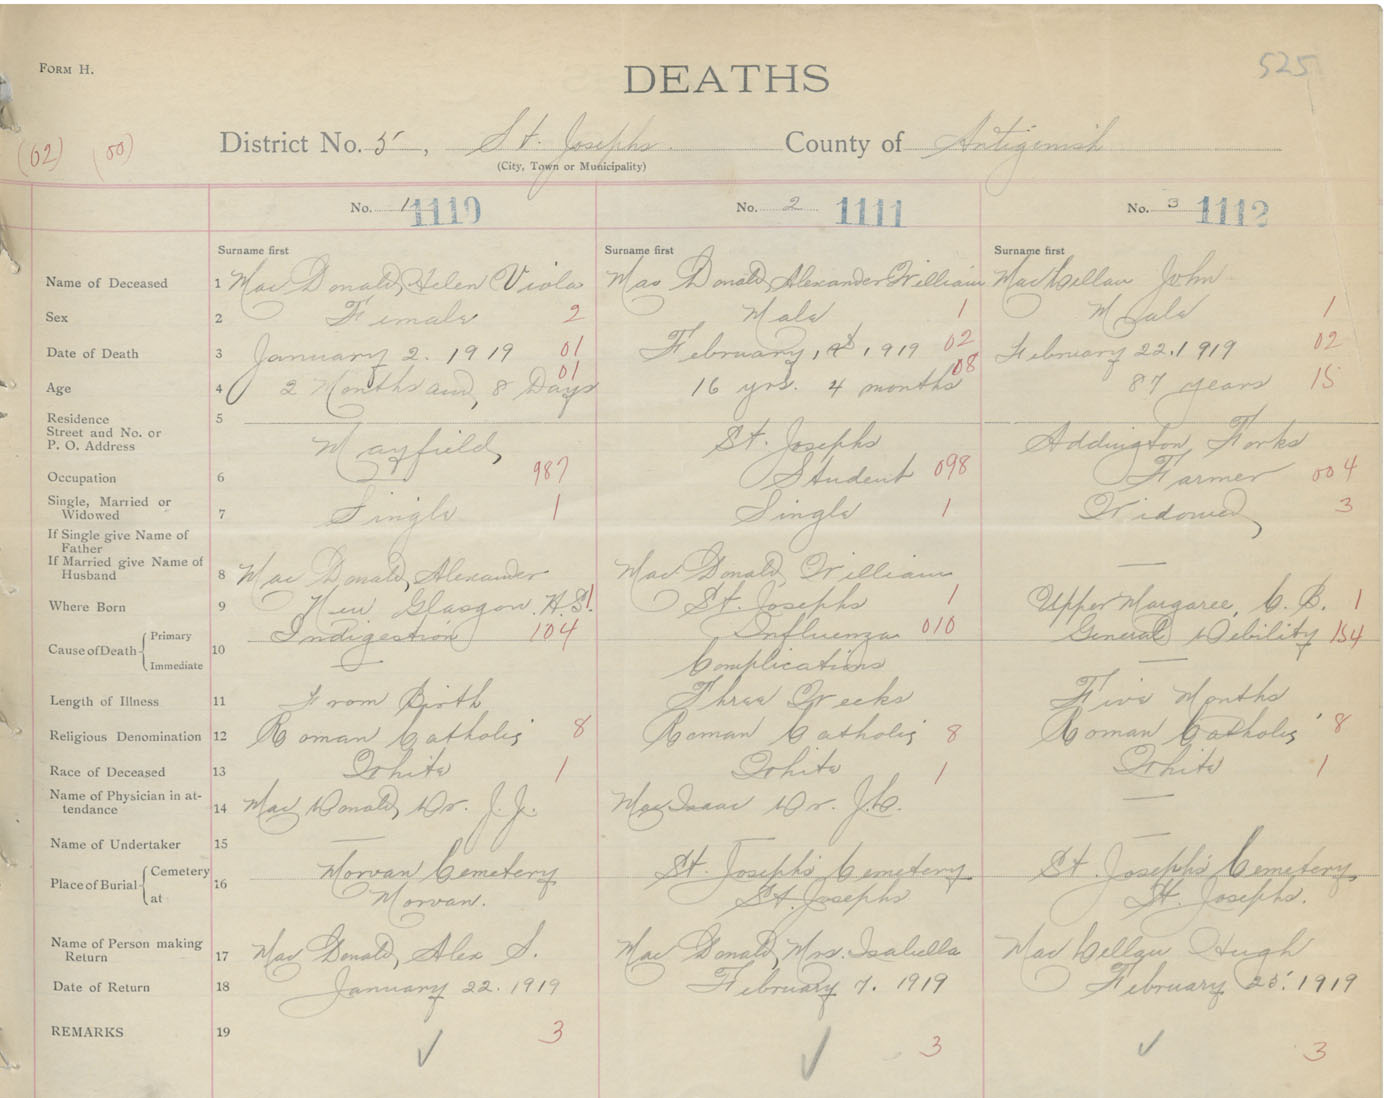 FORM H.
DEATHS
525
(02) (00)
District No. 5, St. Josephs. County of Antigonish
(City, Town or Municipality)
No. 1 1110 No. 2 1111 No. 3 1112
Surname first Surname first Surname first
Name of Deceased 1 Mac Donald, Helen Viola Mac Donald, Alexander William MacLellan John
Sex 2 Female 2 Male 1 Male 1
Date of Death 3 January 2. 1919 01 February, 1919 02 February 22. 1919 02
Age 4 2 Months and 8 Days 01 16 yrs. 4 months 08 87 years 15
Residence 5
Street and No. or
P. O. Address Mayfield St. Josephs Addington Forks
Occupation 6 987 Student 098 Farmer 004
Single, Married or
Widowed 7 Single 1 Single 1 Widowed 3
If Single give Name of
Father
If Married give Name of
Husband 8 Mac Donald, Alexander Mac Donald, William —
Where Born 9 New Glasgow. N.S. 1 St. Josephs 1 Upper Margaree, C. B. 1
Cause of Death { Primary Indigestion 104 Influenza 010 General Debility 154
Immediate 10 — Complications —
Length of Illness 11 From Birth Three Weeks Five Months
Religious Denomination 12 Roman Catholic 8 Roman Catholic 8 Roman Catholic 8
Race of Deceased 13 White 1 White 1 White 1
Name of Physician in at-
tendance 14 Mac Donald, Dr. J. J. MacIsaac Dr. J.C. —
Name of Undertaker 15 — — —
Place of Burial { Cemetery 16 Morvan Cemetery St. Joseph's Cemetery St. Joseph's Cemetery
at Morvan. St. Josephs St. Josephs.
Name of Person making
Return 17 Mac Donald, Alex S. Mac Donald, Mrs. Isabella MacLellan Hugh
Date of Return 18 January 22. 1919 February 7. 1919 February 25. 1919
REMARKS 19 ✓ 3 ✓ 3 ✓ 3